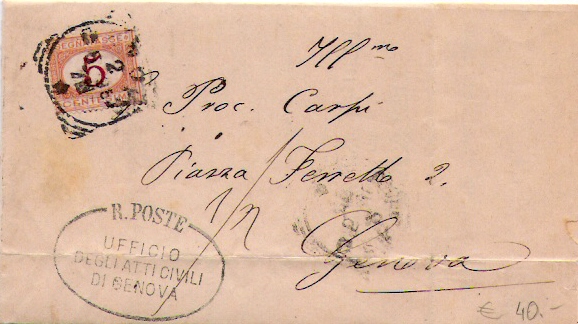 SEGNATASSE
5
CENTESIMI
Ill mo
Proc. Carpi
Piazza Ferretto 2.
Genova
R. POSTE
UFFICIO
DEGLI ATTI CIVILI
DI GENOVA
€ 40.-